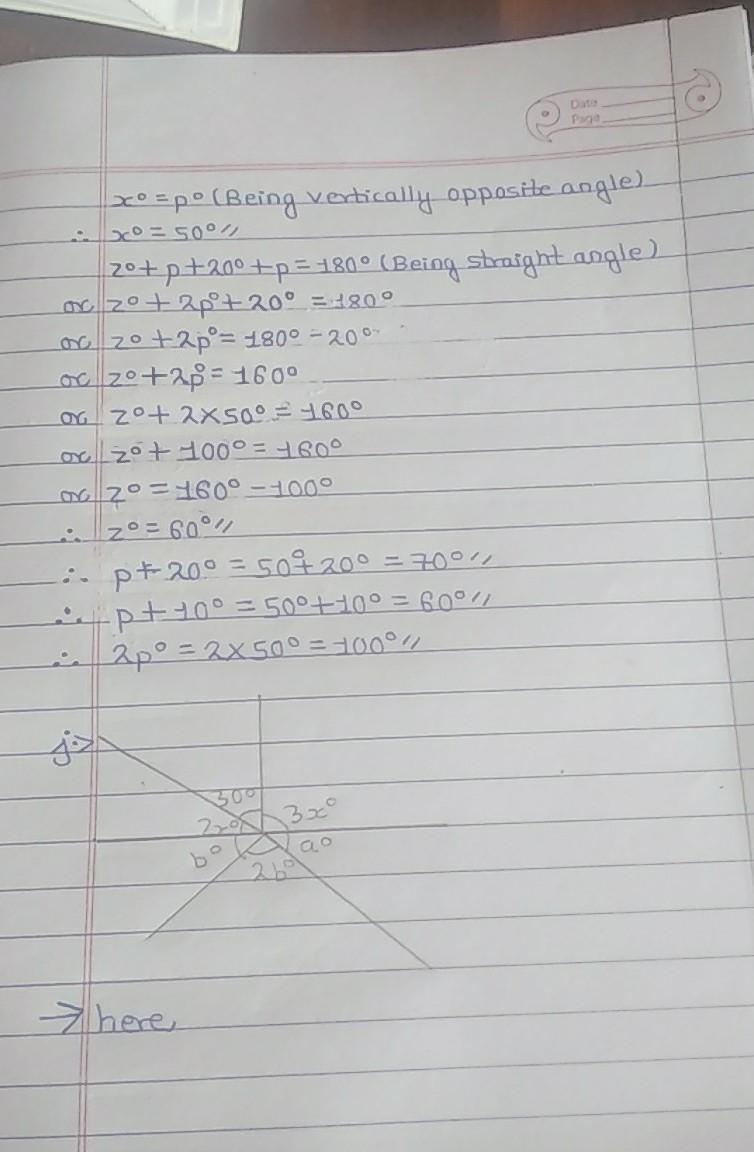 Date
Page
x° = p° (Being vertically opposite angle)
∴ x° = 50°//
z° + p + 20° + p = 180° (Being straight angle)
or z° + 2p° + 20° = 180°
or z° + 2p° = 180° - 20°
or z° + 2p° = 160°
or z° + 2×50° = 160°
or z° + 100° = 160°
or z° = 160° - 100°
∴ z° = 60°//
∴ p + 20° = 50° + 20° = 70°//
∴ p + 10° = 50° + 10° = 60°//
∴ 2p° = 2×50° = 100°//
j:>
30°
3x°
2x°
a°
b°
2b°
→ here,